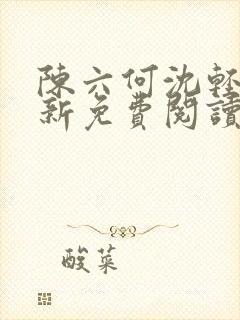 陳六何沈輕
新免費閱讀
酸菜